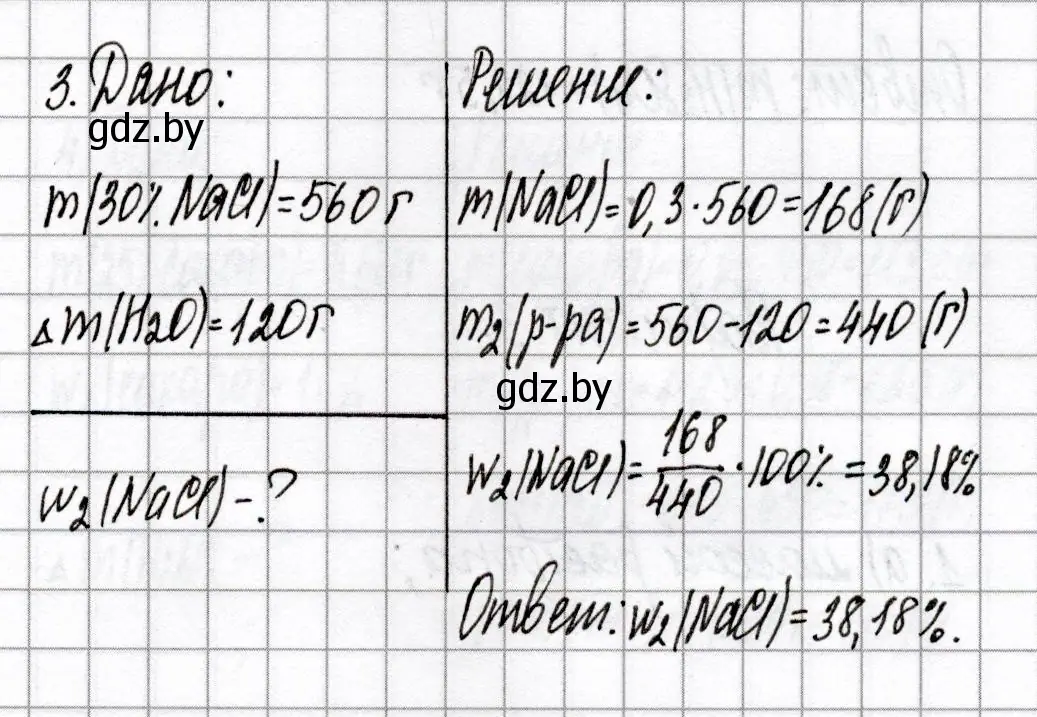 3. Дано:
gdz.by
m(30% NaCl)=560г
△m(H₂O)=120г
w₂(NaCl)-?
Решение:
m(NaCl)=0,3·560=168(г)
m₂(р-ра)=560-120=440(г)
gdz.by
w₂(NaCl)=168/440·100%=38,18%
Ответ: w₂(NaCl)=38,18%.